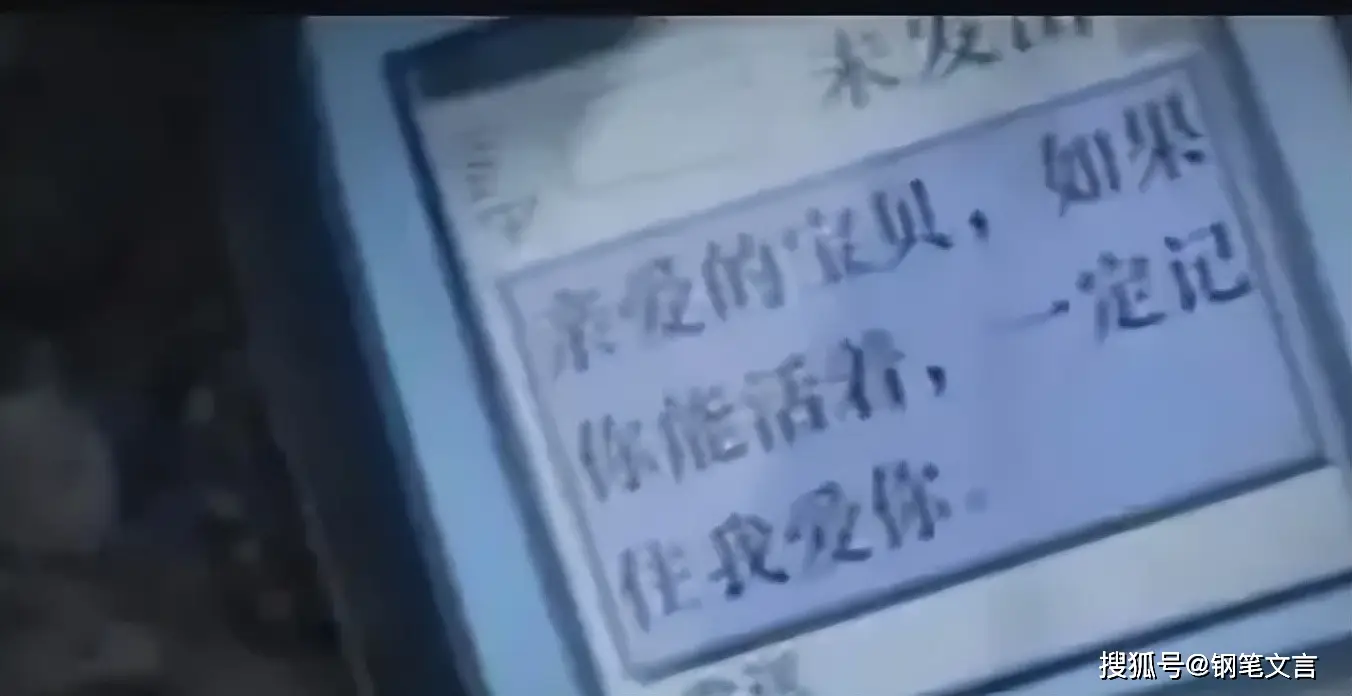 未发出
亲爱的宝贝，如果
你能活着，一定记
住我爱你。
搜狐号@钢笔文言